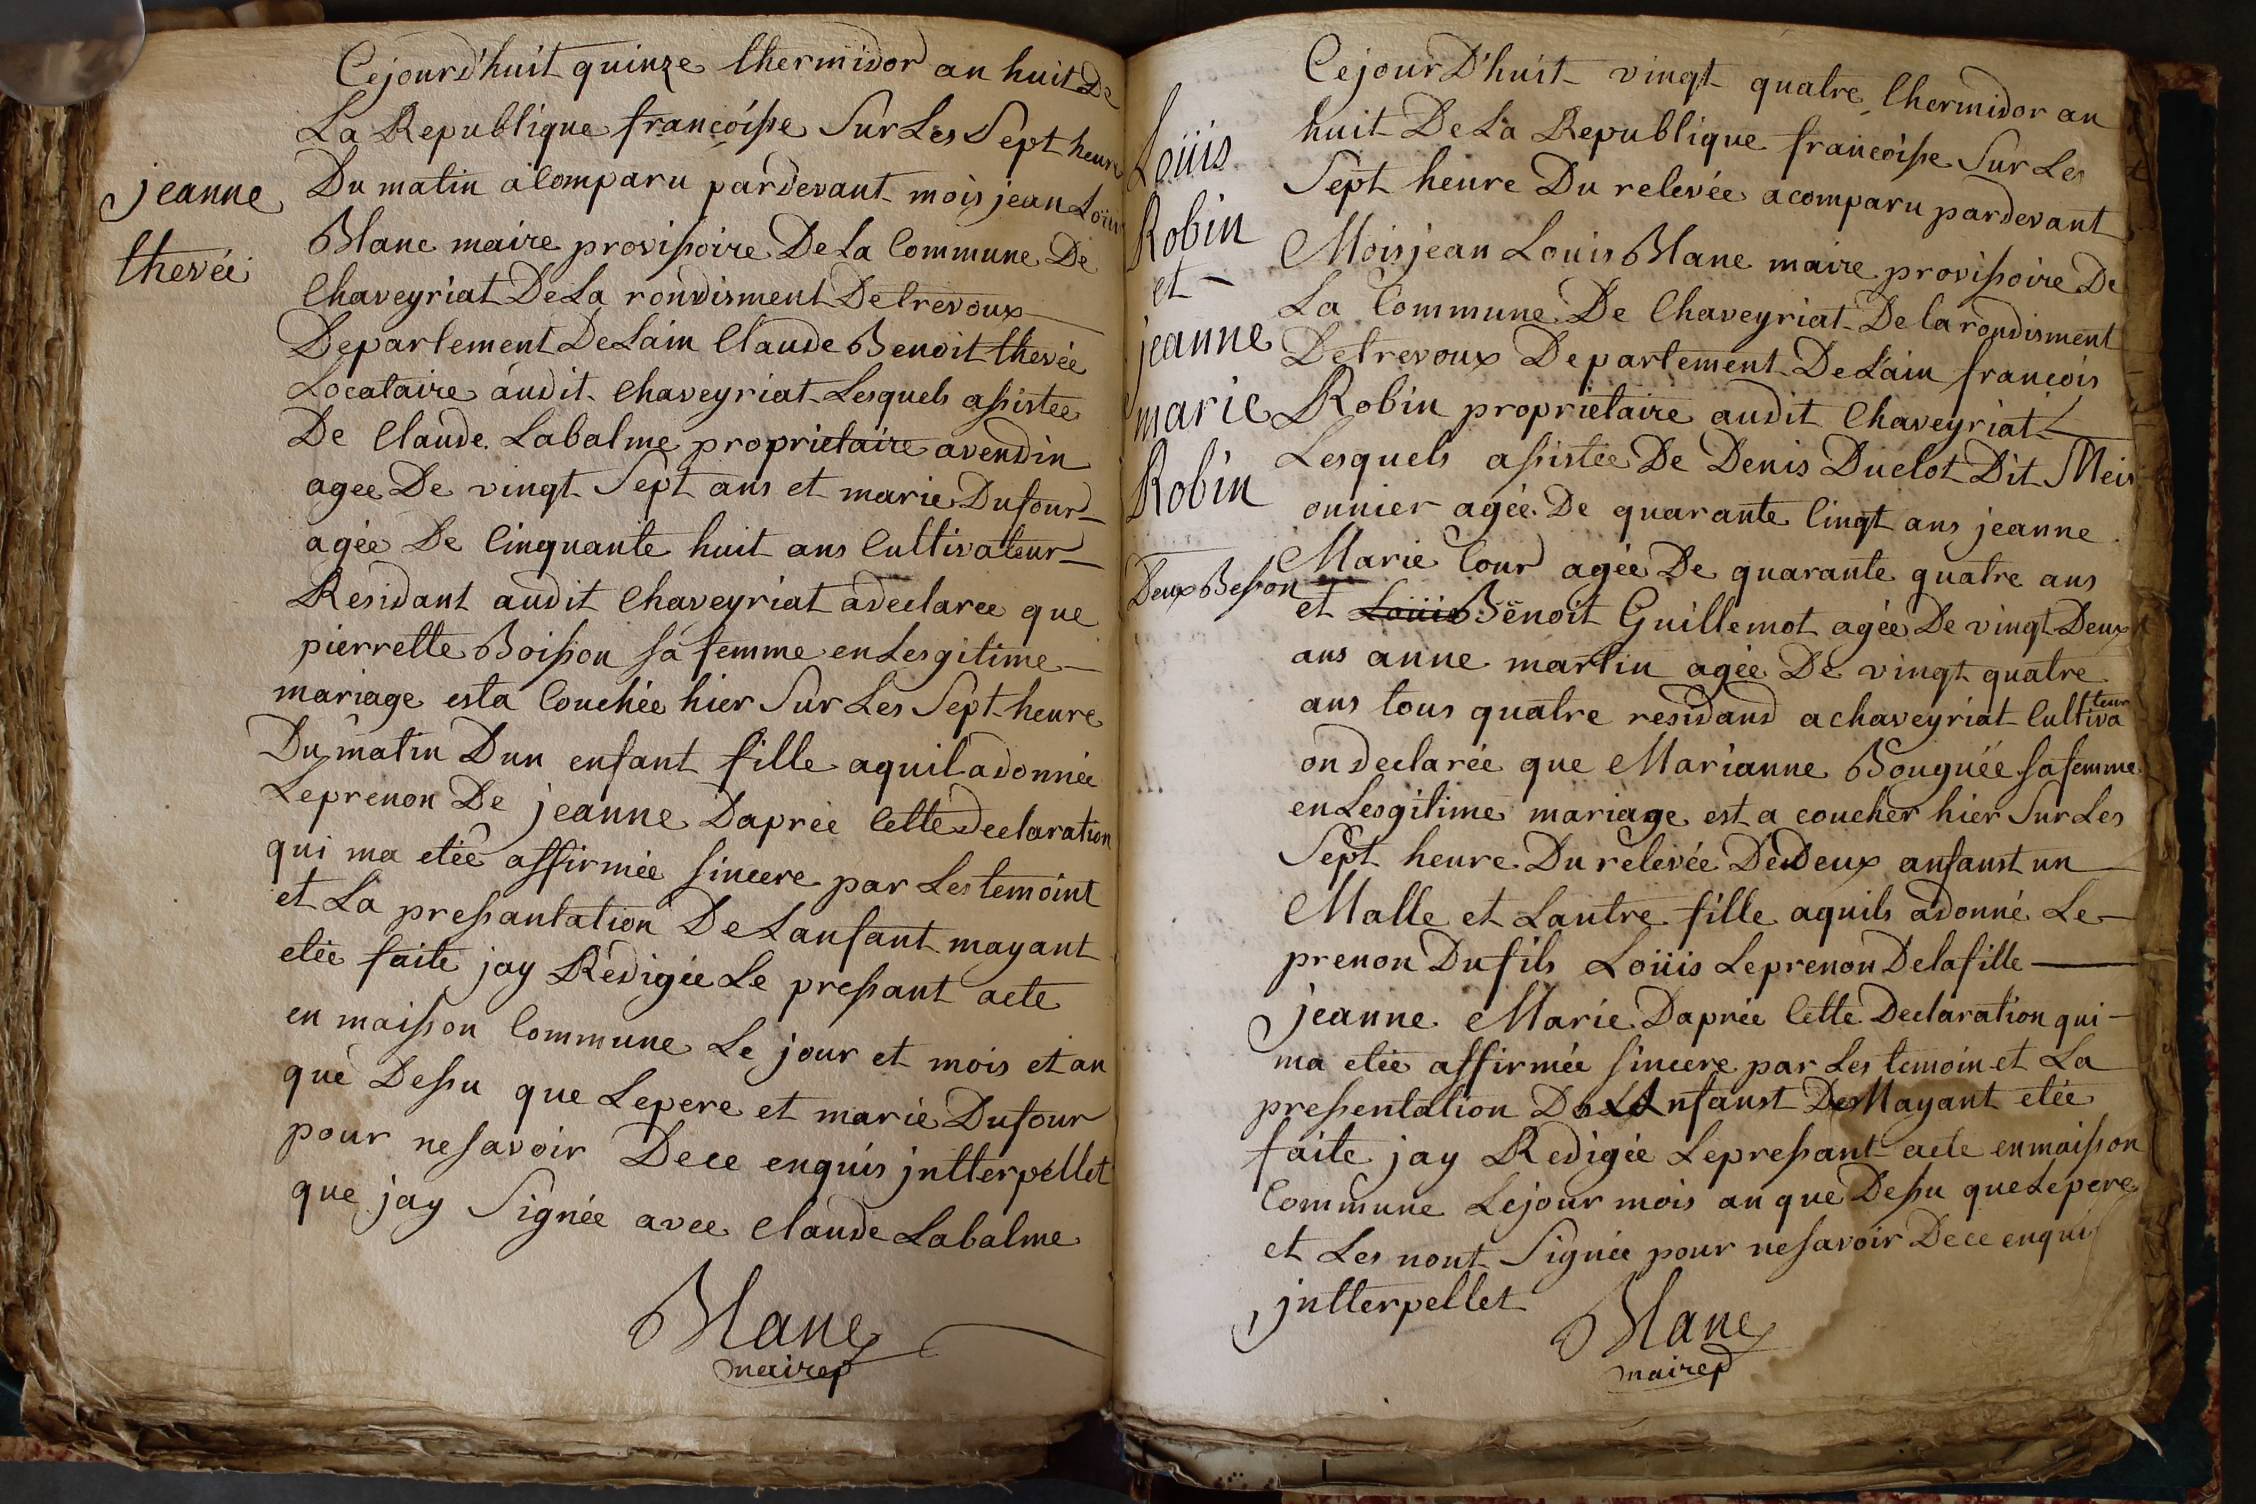 jeanne
thevée
Cejourd'huit quinze thermidor an huit De
La Republique françoisse Sur Les Sept heure
Du matin a Comparu pardevant mois jean Loüis
Blanc maire provissoire De La Commune De
Chaveyriat De La rondisment De trevoux
Departement De Lain Claude Benoit thevée
Locataire audit Chaveyriat Lesquels assistée
De Claude Labalme proprietaire a vendin
agee De vingt Sept ans et marie Dufour
agée De Cinquante huit ans Cultivateur
Residant audit Chaveyriat a declaree que
pierrette Boisson sa femme en Lesgitime
mariage est a Couchée hier Sur Les Sept heure
Du matin Dun enfant fille a quil a donnée
Le prenon De jeanne Daprée Cette declaration
qui ma etée affirmée sincere par Les temoint
et La pressantation De Lansant mayant
etée faite jay Redigée Le pressant acte
en maisson Commune Le jour et mois et an
que Dessu que Le pere et marie Dufour
pour ne savoir De ce enquis jntterpellet
que jay Signée avec Claude Labalme
Blanc
maire p
Loüis
Robin
et
jeanne
marie
Robin
Deux Besson
Cejour D'huit vingt quatre thermidor an
huit De La Republique françoisse Sur Les
Sept heure Du relevée a comparu pardevant
Mois jean Louis Blanc maire provissoire De
La Commune De Chaveyriat De la rondisment
De trevoux Departement De Lain francois
Robin proprietaire audit Chaveyriat
Lesquels assistée De Denis Duclot Dit Meis
onnier agée De quarante Cinqt ans jeanne
Marie Cour agée De quarante quatre ans
et Loüis Benoit Guillemot agée De vingt Deux
ans anne martin agée De vingt quatre
ans tous quatre residand a chaveyriat Cultivateur
on declarée que Marianne Bouguée sa femme
en Lesgitime mariage est a coucher hier Sur Les
Sept heure Du relevée De Deux anfanst un
Malle et Lautre fille a quils a donné Le
prenon Du fils Loüis Le prenon De la fille
jeanne Marie Daprée Cette Declaration qui
ma etée affirmée sincere par Les temoin et La
pressentation Anfanst Mayant etée
faite jay Redigée Le pressant acte en maisson
Commune Le jour mois an que Dessu que Le pere
et Les nont Signée pour ne savoir De ce enquis
jntterpellet
Blanc
maire p